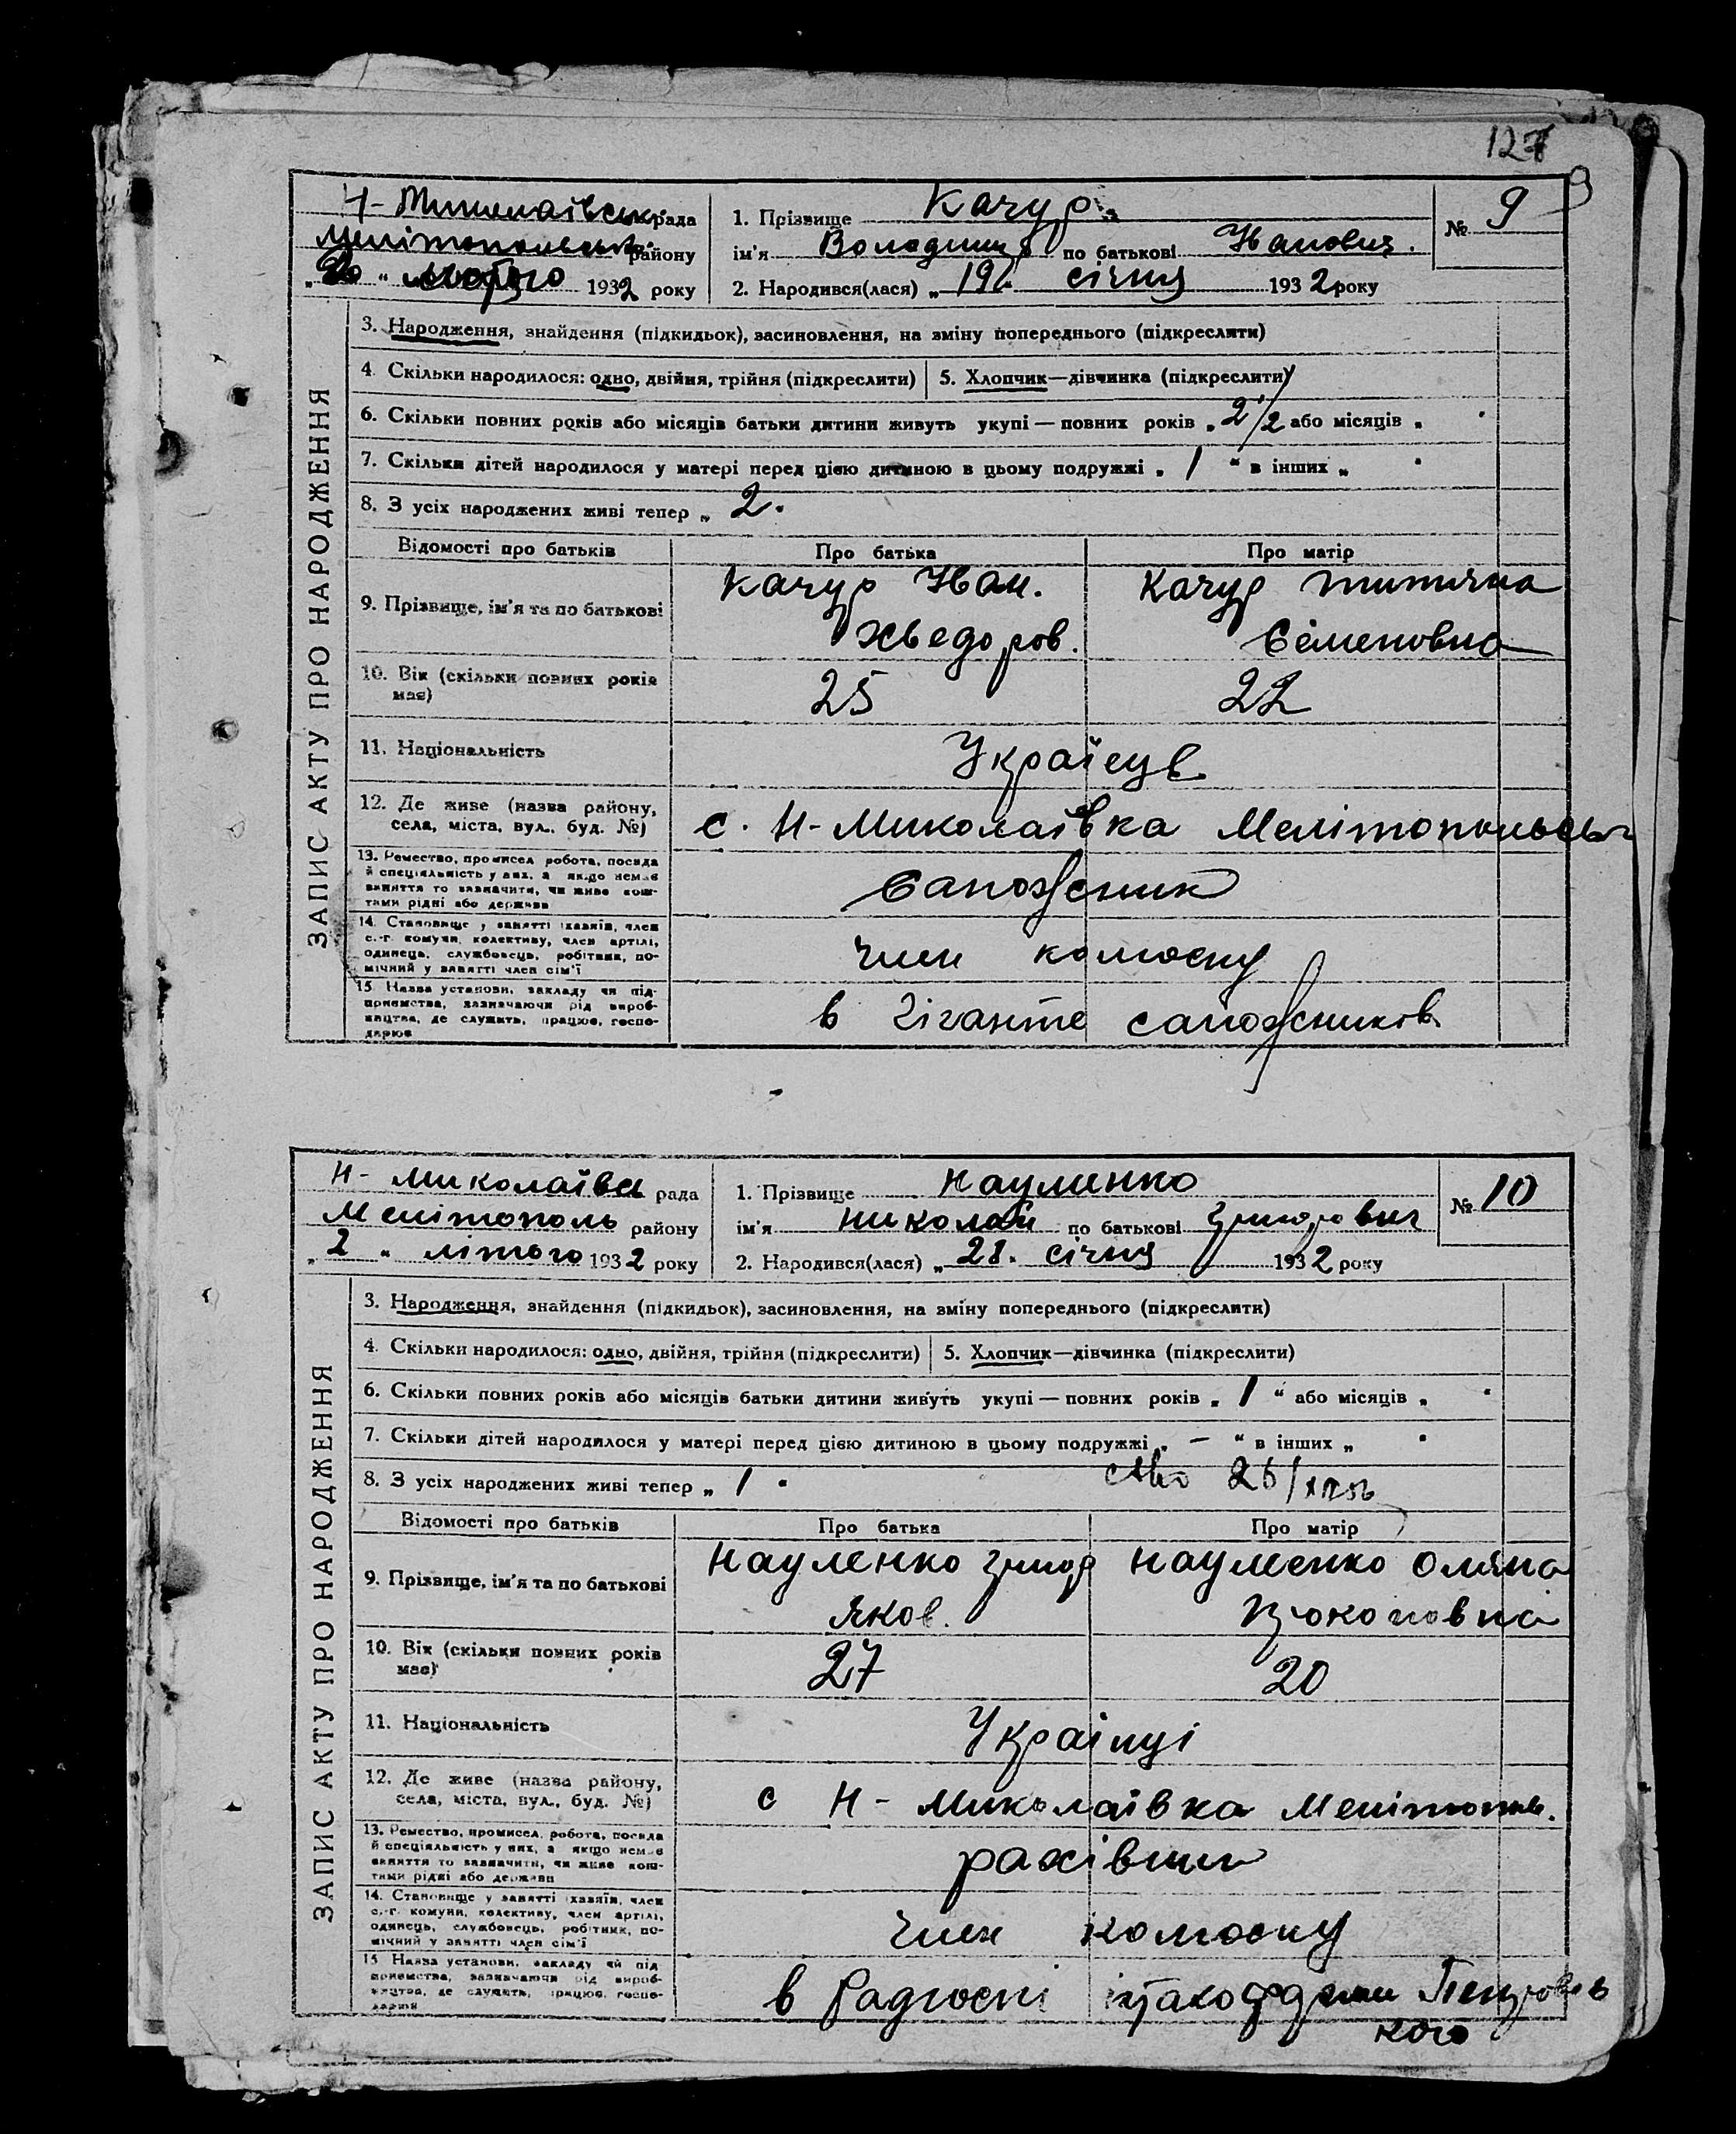 127
9
Н-Миколаївськ рада
Мелітопольськ. району
" " лютого 1932 року
1. Прізвище Качур
ім'я Володимир по батькові Иванович.
2. Народився(лася) „ 19 " січня 1932 року
№ 9
ЗАПИС АКТУ ПРО НАРОДЖЕННЯ
3. Народження, знайдення (підкидьок), засиновлення, на зміну попереднього (підкреслити)
4. Скільки народилося: одно, двійня, трійня (підкреслити) 5. Хлопчик—дівчинка (підкреслити)
6. Скільки повних років або місяців батьки дитини живуть укупі — повних років „ 2 1/2 або місяців „ "
7. Скільки дітей народилося у матері перед цією дитиною в цьому подружжі „ 1 " в інших „ "
8. З усіх народжених живі тепер „ 2.
Відомості про батьків Про батька Про матір
9. Прізвище, ім'я та по батькові Качур Иван. Качур Титяна
Хведоров. Семеновна
10. Вік (скільки повних років має) 25 22
11. Національність Украінців
12. Де живе (назва району, села, міста, вул., буд. №) с. Н-Миколаївка Мелітопольськ
13. Ремество, промисел робота, посада й спеціяльність у них, а якщо немає заняття то зазначити, чи живе коштами рідні або держави Сапожник
14. Становище у занятті (хазяїн, член с.-г. комуни, колективу, член артілі, одинець, службовець, робітник, помічний у занятті член сім'ї член колгоспу
15. Назва установи, закладу чи підприємства, зазначаючи рід виробництва, де служить, працює, господарює в Гіганте сапожників
Н-Миколаївка рада
Мелітополь району
„ 2 " лютого 1932 року
1. Прізвище Науменко
ім'я Николай по батькові Григорович
2. Народився(лася) „ 28. січня 1932 року
№ 10
ЗАПИС АКТУ ПРО НАРОДЖЕННЯ
3. Народження, знайдення (підкидьок), засиновлення, на зміну попереднього (підкреслити)
4. Скільки народилося: одно, двійня, трійня (підкреслити) 5. Хлопчик—дівчинка (підкреслити)
6. Скільки повних років або місяців батьки дитини живуть укупі — повних років „ 1 " або місяців „ "
7. Скільки дітей народилося у матері перед цією дитиною в цьому подружжі „ — " в інших „ "
8. З усіх народжених живі тепер „ 1 "
Відомості про батьків Про батька Про матір
9. Прізвище, ім'я та по батькові Науменко Григор Науменко Оляна
Яков. Прокоповна
10. Вік (скільки повних років має) 27 20
11. Національність Українці
12. Де живе (назва району, села, міста, вул., буд. №) с Н-Миколаївка Мелітопль.
13. Ремество, промисел, робота, посада й спеціяльність у них, а якщо немає заняття то зазначити, чи живе коштами рідні або держави рахівник
14. Становище у занятті (хазяїн, член с.-г. комуни, колективу, член артілі, одинець, службовець, робітник, помічний у занятті член сім'ї член колгоспу
15. Назва установи, закладу чи підприємства, зазначаючи рід виробництва, де служить, працює, господарює в Радгоспі Петровсь
кого